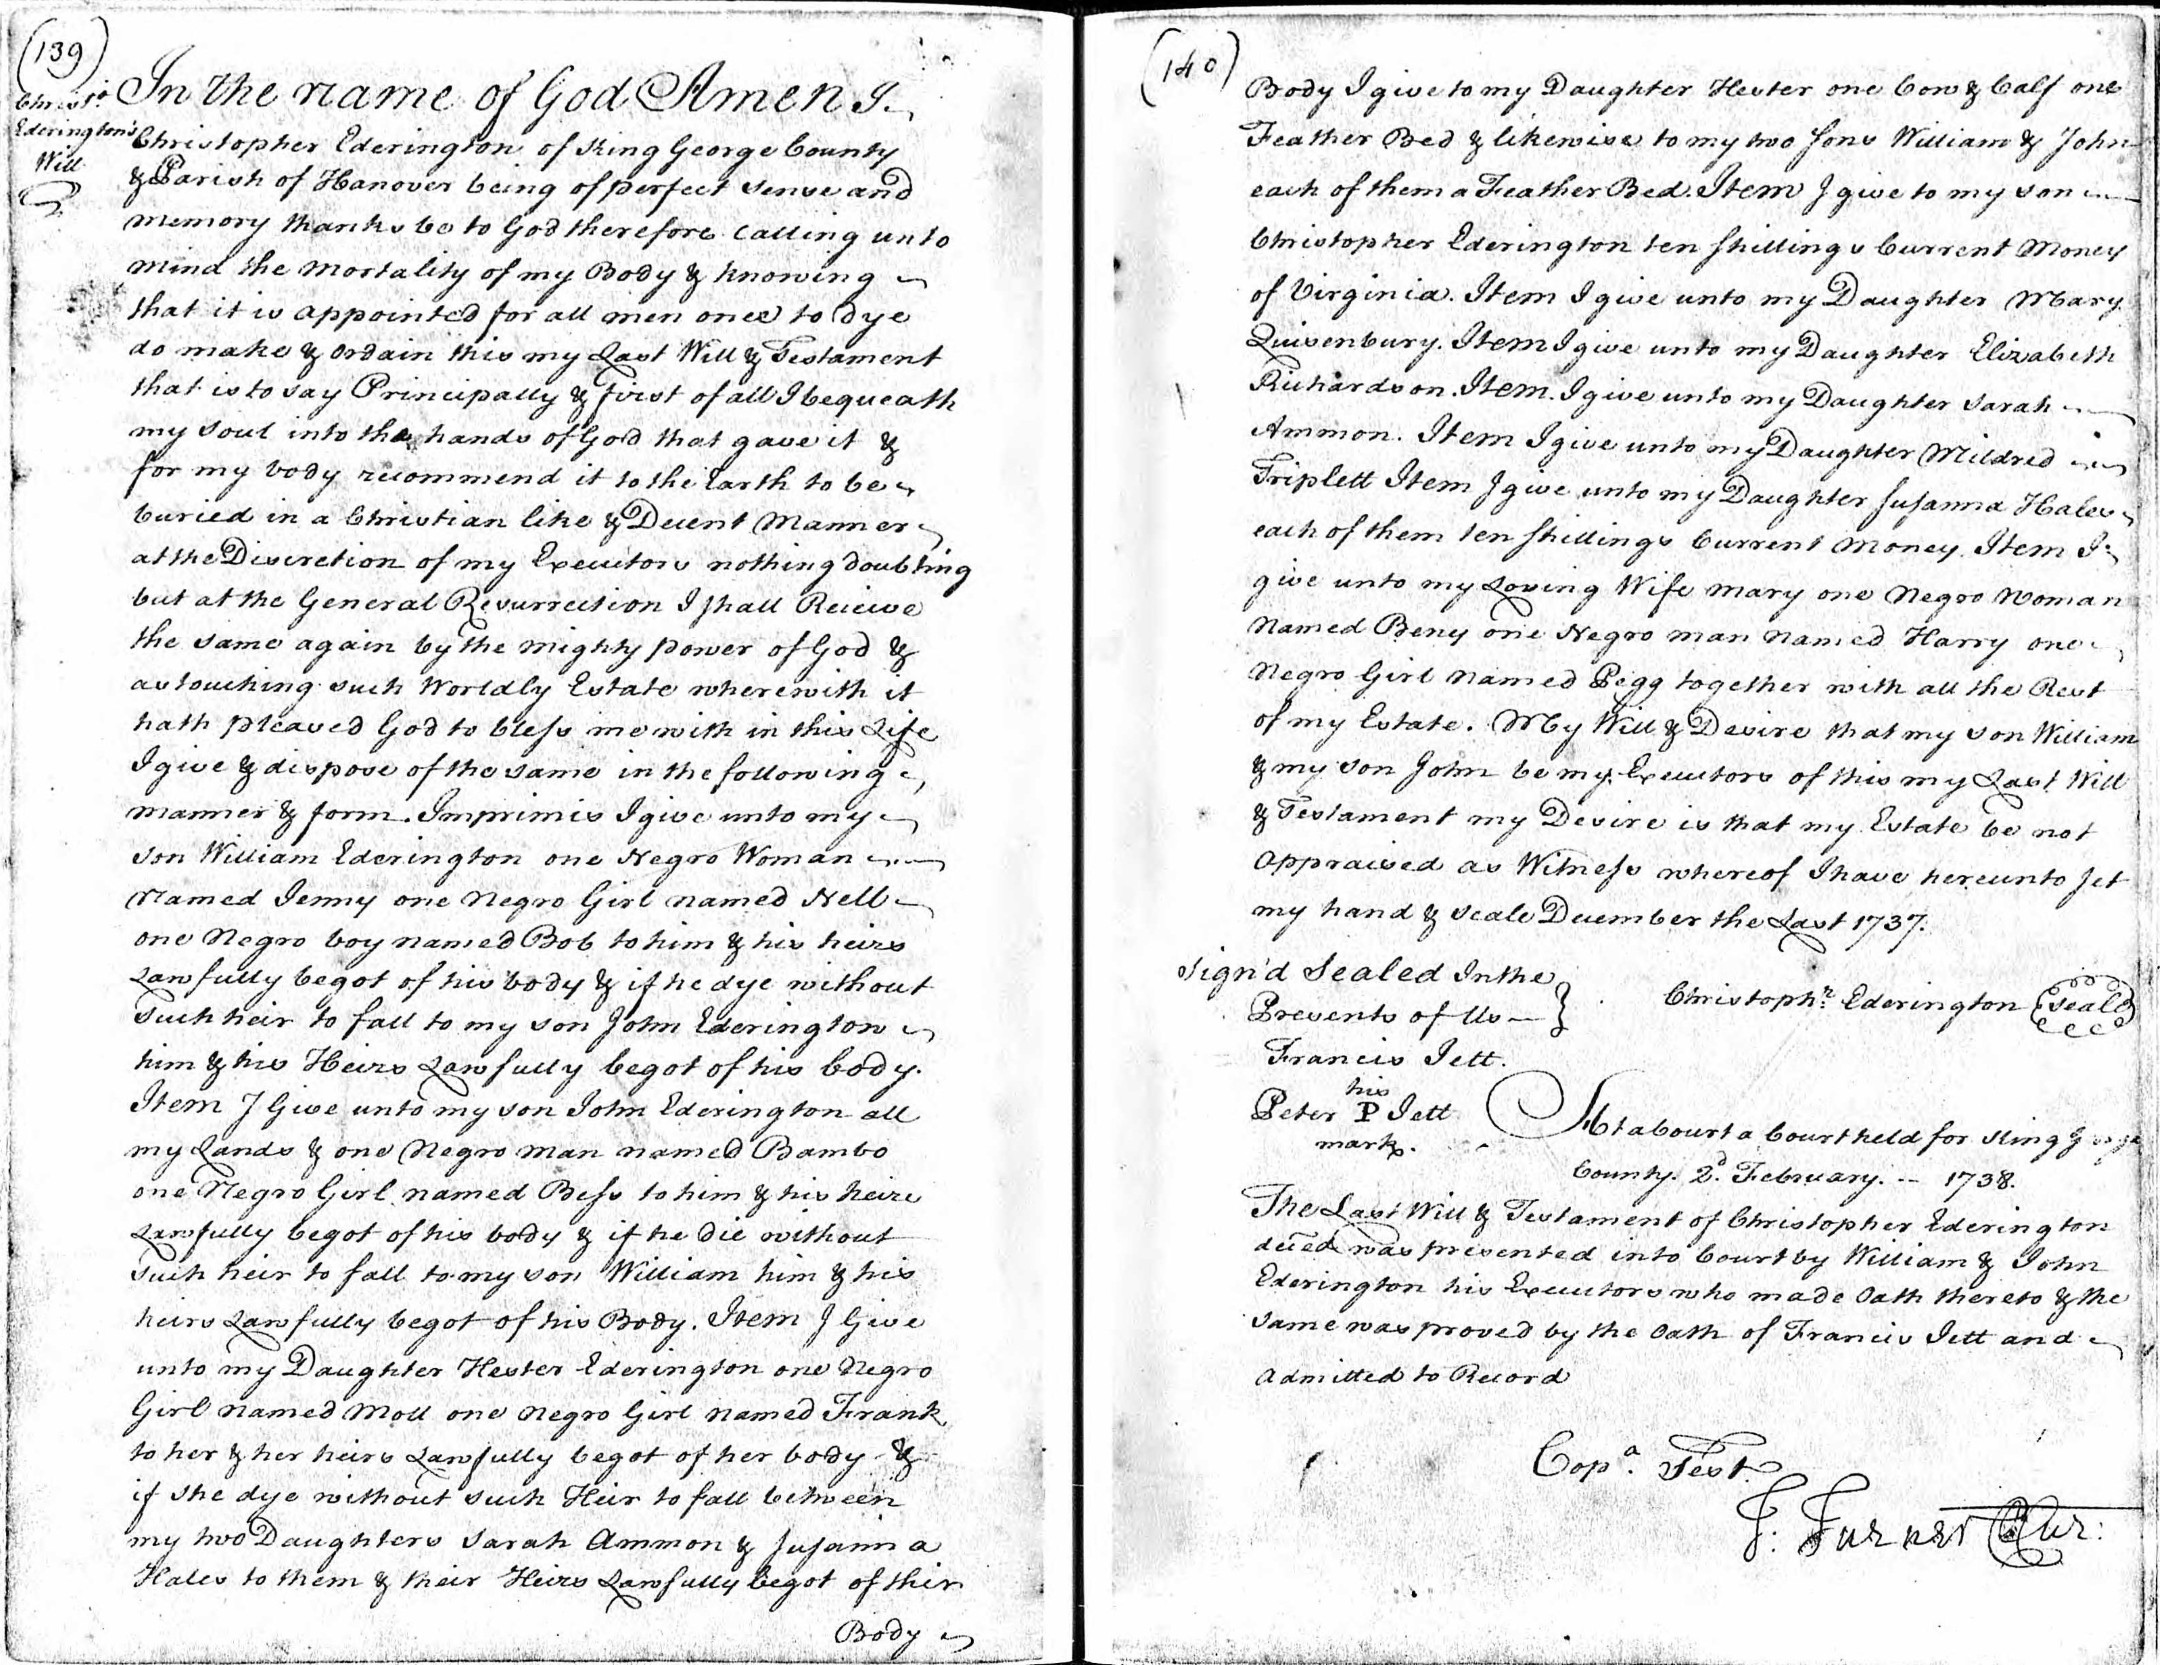 (139)
Christr.
Ederington's
Will
In the name of God Amen I
Christopher Ederington of King George County
& Parish of Hanover being of perfect sense and
memory thanks be to God therefore calling unto
mind the mortality of my Body & knowing
that it is appointed for all men once to dye
do make & ordain this my Last Will & Testament
that is to say Principally & first of all I bequeath
my soul into the hands of God that gave it &
for my body recommend it to the Earth to be
buried in a Christian like & Decent Manner
at the Discretion of my Executors nothing doubting
but at the General Resurrection I shall Receive
the same again by the mighty power of God &
as touching such Worldly Estate wherewith it
hath pleased God to bless me with in this Life
I give & dispose of the same in the following
manner & form. Imprimis I give unto my
son William Ederington one Negro Woman
Named Jenny one Negro Girl named Nell
one Negro boy named Bob to him & his heirs
Lawfully begot of his body & if he dye without
such heir to fall to my son John Ederington
him & his Heirs Lawfully begot of his body.
Item I Give unto my son John Ederington all
my Lands & one Negro man named Bambo
one Negro Girl named Bess to him & his heirs
Lawfully begot of his body & if he die without
such heir to fall to my son William him & his
heirs Lawfully begot of his Body. Item I Give
unto my Daughter Hester Ederington one Negro
Girl named Moll one Negro Girl named Frank
to her & her heirs Lawfully begot of her body &
if she dye without such Heir to fall between
my two Daughters Sarah Ammon & Susanna
Hales to them & their Heirs Lawfully begot of thir
Body
(140)
Body I give to my Daughter Hester one Cow & Calf one
Feather Bed & likewise to my two sons William & John
each of them a Feather Bed. Item I give to my son
Christopher Ederington ten shillings Current Money
of Virginia. Item I give unto my Daughter Mary
Quisenbury. Item I give unto my Daughter Elizabeth
Richardson. Item. I give unto my Daughter Sarah
Ammon. Item I give unto my Daughter Mildred
Triplett Item I give unto my Daughter Susanna Hales
each of them ten shillings Current Money. Item I
give unto my Loving Wife Mary one Negro woman
Named Beny one Negro man named Harry one
Negro Girl named Pegg together with all the Rest
of my Estate. My Will & Desire that my son William
& my son John be my Executors of this my Last Will
& Testament my Desire is that my Estate be not
appraised as Witness whereof I have hereunto set
my hand & seale December the Last 1737.
Sign'd Sealed In the
Presents of Us
Christophr. Ederington (Seal)
Francis Jett.
his
Peter P Jett
mark.
At a Court a Court held for King George
County. 2d. February. -- 1738.
The Last Will & Testament of Christopher Ederington
deced was presented into Court by William & John
Ederington his Executors who made oath thereto & the
same was proved by the Oath of Francis Jett and
admitted to Record
Copa. Test.
T: Turner Clur: